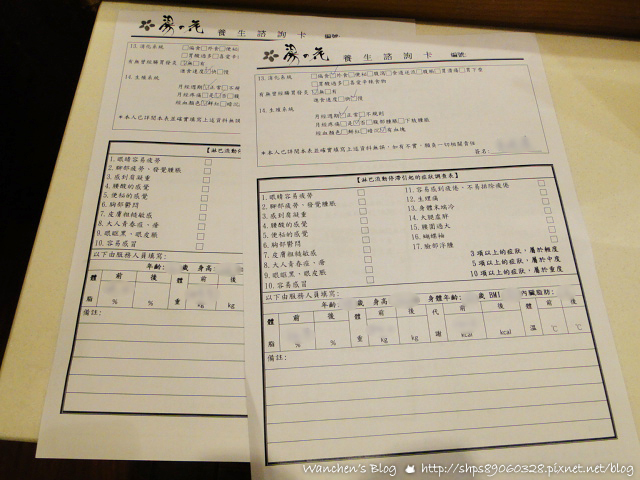 湯の花 養生諮詢卡 編號:
13.消化系統
有無曾經購買替是
速食速度 快 慢
14.生理系統
月經週期 正常
月經疼痛 是 否
經血顏色 鮮紅 暗沉
*本人已詳閱本表並確實填寫上述資料無誤
【淋巴流動停
1.眼睛容易疲勞
2.腳部疲勞、發覺腫脹
3.感到肩凝重
4.腰酸的感覺
5.便秘的感覺
6.胸部鬱悶
7.皮膚粗糙敏感
8.大人青春痘,癢
9.眼眶黑、眼皮脹
10.容易感冒
以下由服務人員填寫:
年齡: 歲 身高:
體脂 前 % 後 % 體重 前 kg 後 kg
備註:
湯の花 養生諮詢卡 編號:
13.消化系統 □偏食□外食□便秘□腹瀉□食道逆流□腹脹□胃潰瘍□胃下垂
□胃酸過多□喜愛辛辣食物
□無□有
速食速度□快□慢
14.生理系統
月經週期□正常□不規則
月經疼痛□是□否□腹部腫脹□下肢腫脹
經血顏色□鮮紅□暗沉□有血塊
*本人已詳閱本表並確實填寫上述資料,如有不實,願負一切相關責任
簽名:
【淋巴流動停滯引起的症狀調查表】
1.眼睛容易疲勞 □ 11.容易感到疲倦、不易排除疲倦 □
2.腳部疲勞、發覺腫脹 □ 12.生理痛 □
3.感到肩凝重 □ 13.身體末端冷 □
4.腰酸的感覺 □ 14.大腿皮胖 □
5.便秘的感覺 □ 15.腰圍過大 □
6.胸部鬱悶 □ 16.蝴蝶袖 □
7.皮膚粗糙敏感 □ 17.臉部浮腫 □
8.大人青春痘,癢 □ 3項以上的症狀,屬於輕度
9.眼眶黑、眼皮脹 □ 5項以上的症狀,屬於中度
10.容易感冒 □ 10項以上的症狀,屬於重度
以下由服務人員填寫:
年齡: 歲 身高: 身體年齡: 歲 BMI 內臟脂肪:
體脂 前 % 後 % 體重 前 kg 後 kg 代謝 前 kcal 後 kcal 體溫 前 ℃ 後 ℃
備註:
Wanchen's Blog http://shps89060328.pixnet.net/blog